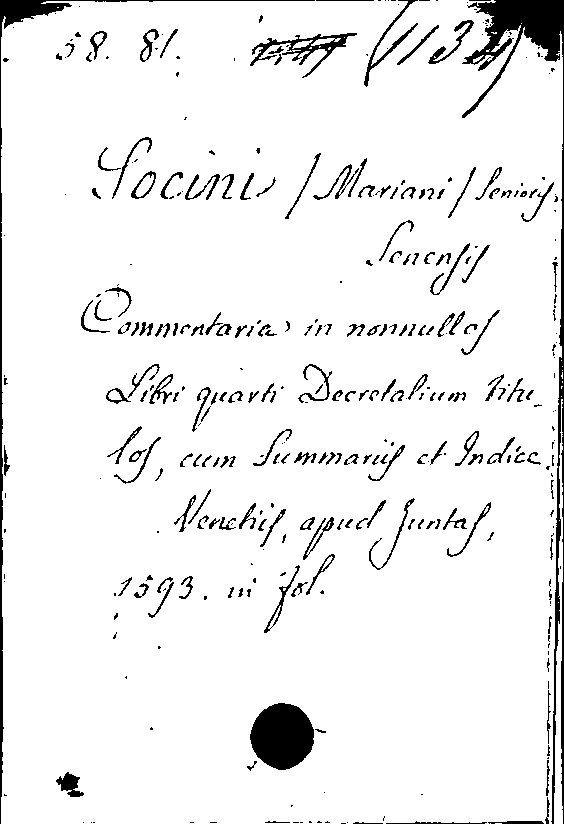 58. 81. (1134)
Socini / Mariani / Senioris,
Senensis
Commentaria in nonnullos
Libri quarti Decretalium titu-
los, cum Summariis et Indice.
Venetiis, apud Juntas,
1593. in fol.